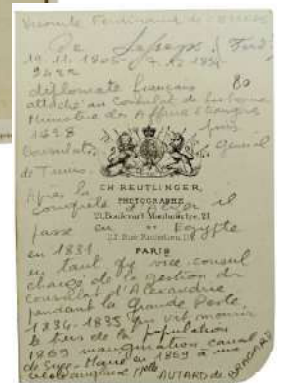 Vicomte Ferdinand de
de Lesseps. Ferd
19.11.1805 - 7.12.1894
diplomate français
attaché au Consulat de Lisbonne
Ministère des Affaires Etrangères
1828 puis
Consulat général
de Tunis.
CH REUTLINGER,
PHOTOGRAPHE
21, Boulevart Montmartre, 21
PARIS
Après la
conquête d'Alger il
passe en Egypte
en 1831
en tant que vice-consul
chargé de la gestion du
consulat d'Alexandrie
pendant la Grande Peste,
1834-1835 qui vit mourir
le tiers de la population
1869 inauguration canal
de Suez - Marié en 1869 à une
Melle AUTARD de BRAGARD